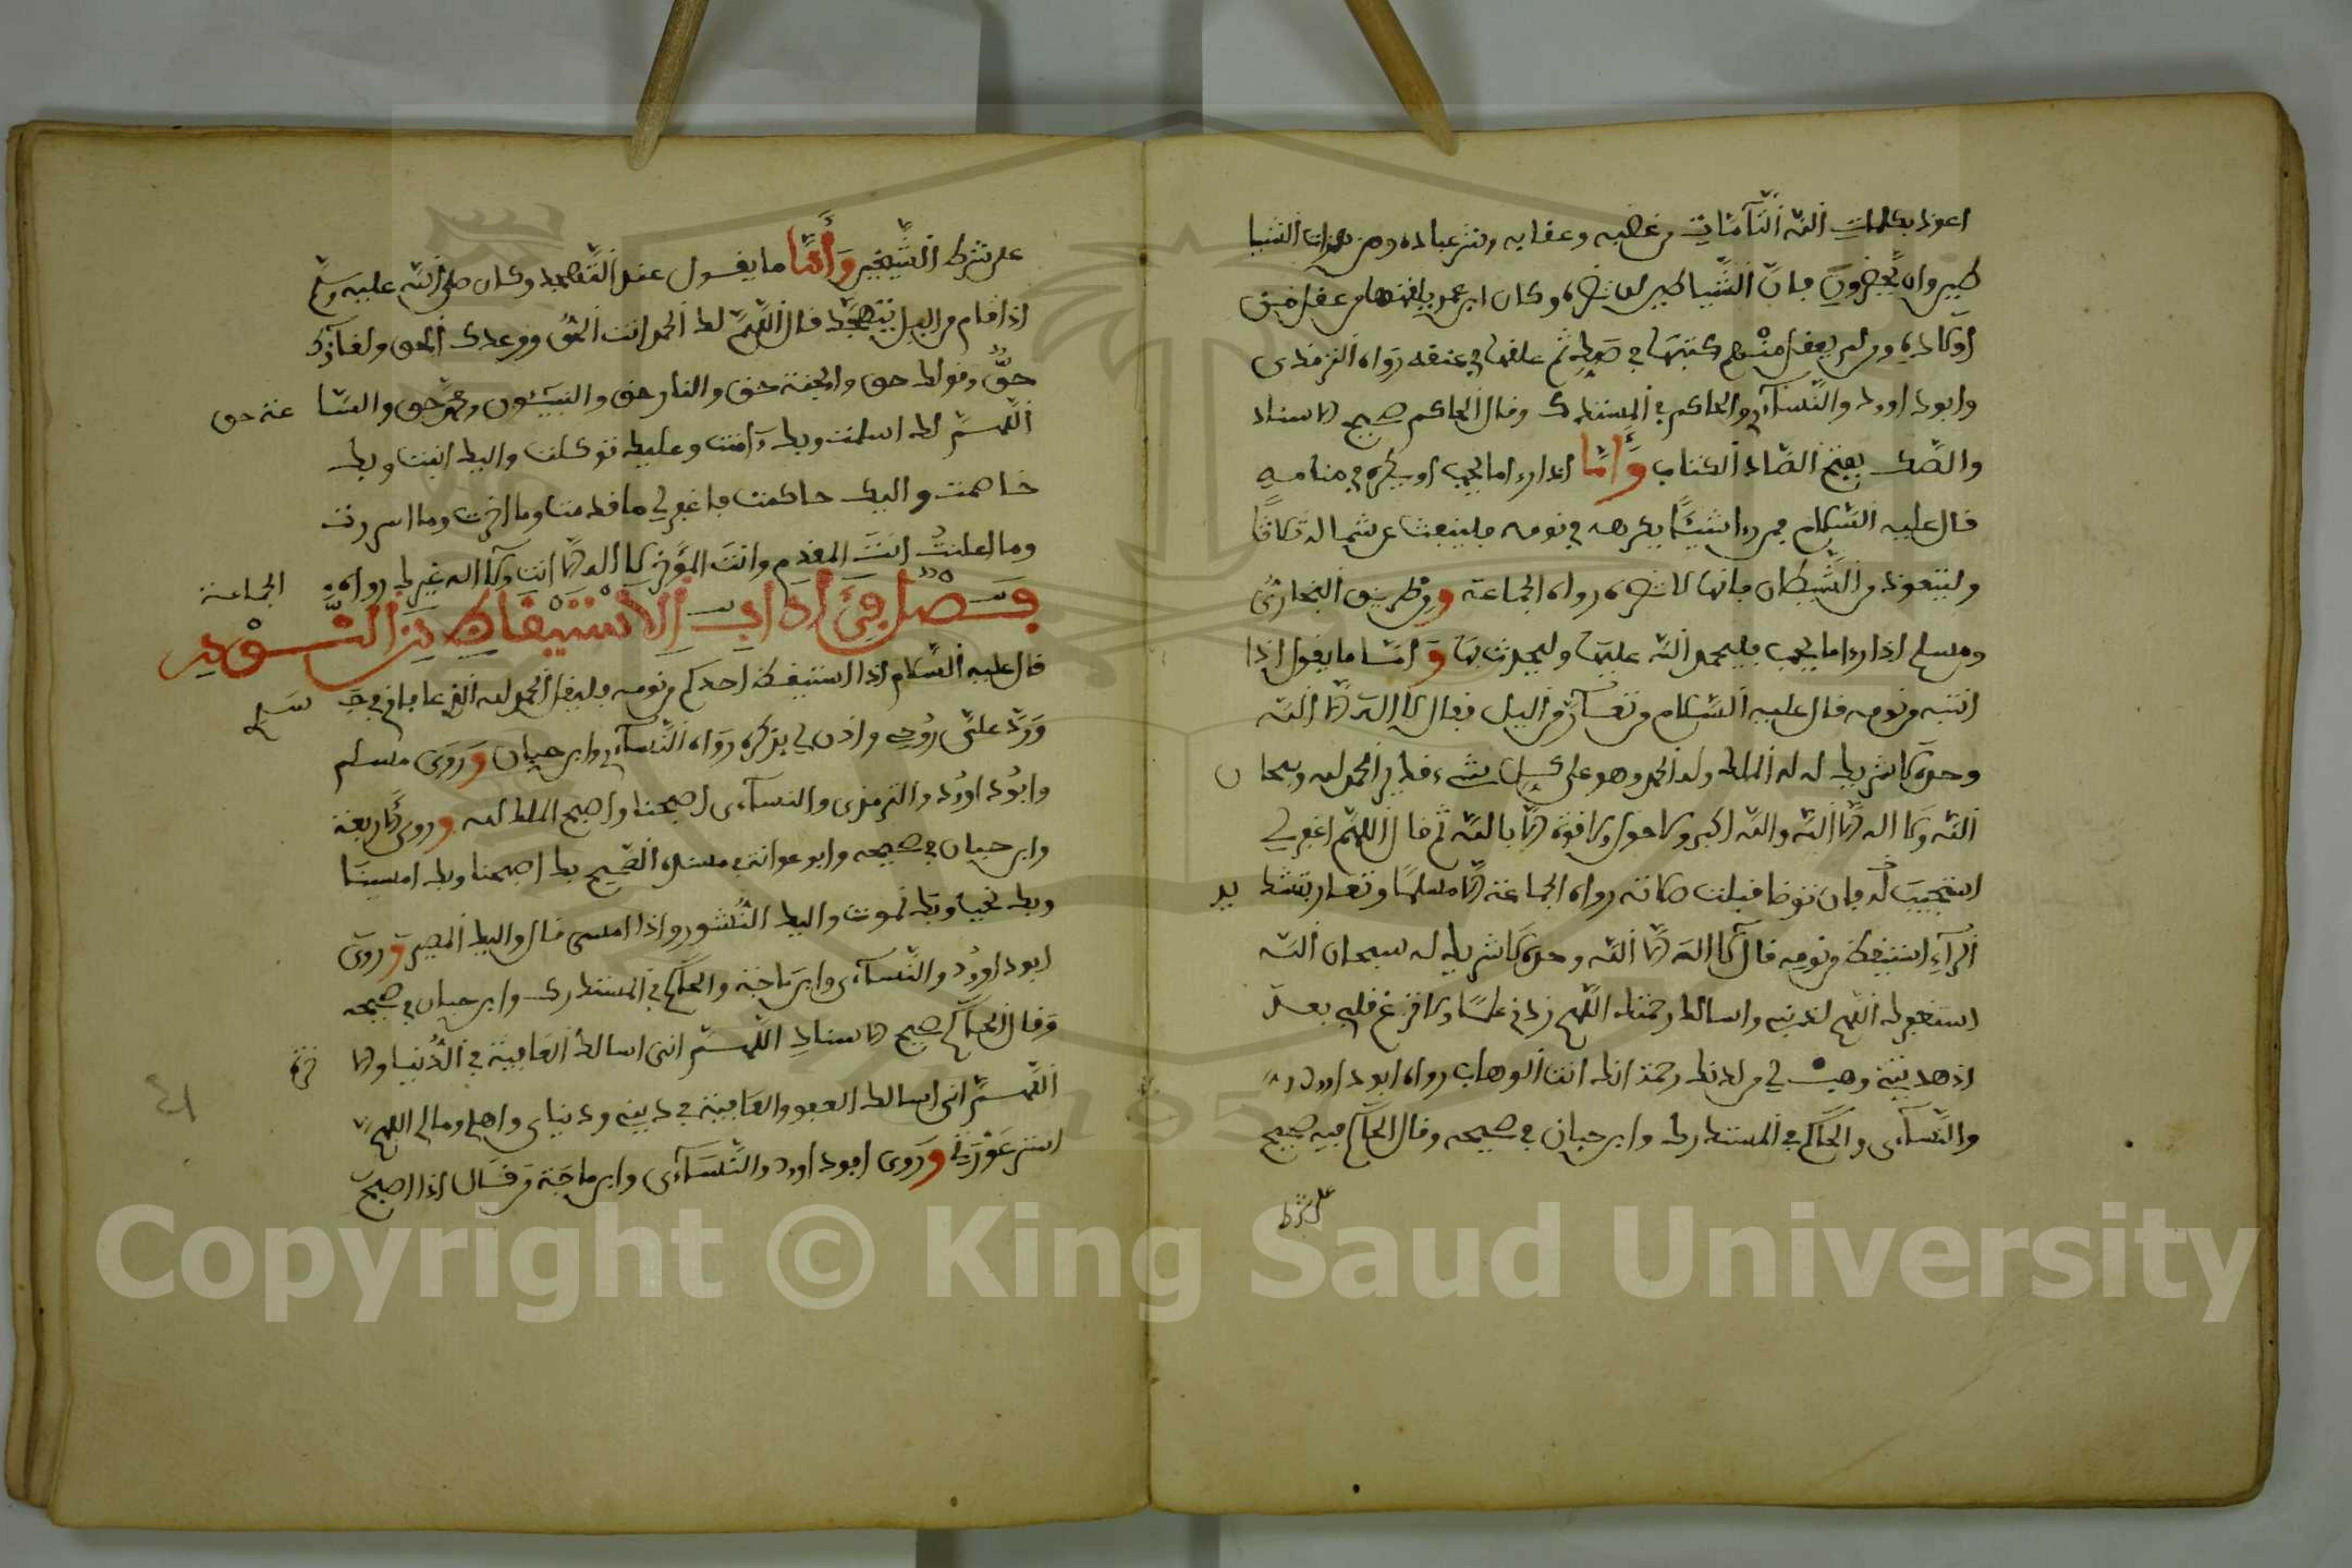 اعوذ بكلمات الله التآمات من غضبه وعقابه وشر عباده ومن همزات الشيا
طين وان يحضرون فان الشياطين لن تضره وكان ابن عمر يلقنها من عقل من
اولاده ومن لم يعقل منهم كتبها في صك ثم علقها في عنقه رواه الترمذي
وابوداوود والنسآءي والحاكم في المستدرك وقال الحاكم صحيح الاسناد
والصك بفتح الصاد الكتاب وأما اذا رءا ما يحب او يكره في منامه
قال عليه السلام من رءا شيئا يكرهه في نومه فلينفث عن شماله ثلاثا
وليتعوذ من الشيطان فانها لا تضره رواه الجماعة ومن طريق البخاري
ومسلم اذا رءا ما يحب فليحمد الله عليها وليحدث بها وأما ما يقول اذا
انتبه من نومه قال عليه السلام من تعآر من اليل فقال لا اله الا الله
وحده لا شريك له له الملك وله الحمد وهو على كل شيء قدير الحمد لله وسبحان
الله ولا اله الا الله والله اكبر ولا حول ولا قوة الا بالله ثم قال اللهم اغفر لي
استجيب له فان توضا قبلت صلاته رواه الجماعة الا مسلما وتعار بتشديد
الرآء استيقظ من نومه قال لا اله الا الله وحده لا شريك له سبحان الله
استغفرك اللهم لذنبي واسالك رحمتك اللهم زدني علما ولا تزغ قلبي بعد
اذ هديتني وهب لي من لدنك رحمة انك انت الوهاب رواه ابوداوود
والنسآءي والحاكم في المستدرك وابن حبان في صحيحه وقال الحاكم فيه صحيح
على شرط
على شرط الشيخين وأما ما يقول عند التهجد وكان صلى الله عليه وسلم
اذا قام من اليل يتهجد قال اللهم لك الحمد انت الحق ووعدك الحق ولقآؤك
حق وقولك حق والجنة حق والنار حق والنبيئون ومحمد حق والساعة حق
اللهم لك اسلمت وبك ءامنت وعليك توكلت واليك انبت وبك
خاصمت واليك حاكمت فاغفر لي ما قدمت وما اخرت وما اسررت
وما اعلنت انت المقدم وانت المؤخر لا اله الا انت ولا اله غيرك رواه الجماعة
فصل في اداب الاستيقاظ من النوم
قال عليه السلام اذا استيقظ احدكم من نومه فليقل الحمد لله الذي عافاني في جسدي
ورد علي روحي واذن لي بذكره رواه النسآءي وابن حبان وروى مسلم
وابوداوود والترمذي والنسآءي اصبحنا واصبح الملك لله وروى الاربعة
وابن حبان في صحيحه وابو عوانة في مسنده الصحيح بك اصبحنا وبك امسينا
وبك نحيا وبك نموت واليك النشور واذا امسى قال واليك المصير وروى
ابوداوود والنسآءي وابن ماجة والحاكم في المستدرك وابن حبان في صحيحه
وقال الحاكم صحيح الاسناد اللهم اني اسالك العافية في الدنيا والاخرة
اللهم اني اسالك العفو والعافية في ديني ودنياي واهلي ومالي اللهم
استر عورتي وروى ابوداوود والنسآءي وابن ماجة من قال اذا اصبح
Copyright © King Saud University
1957